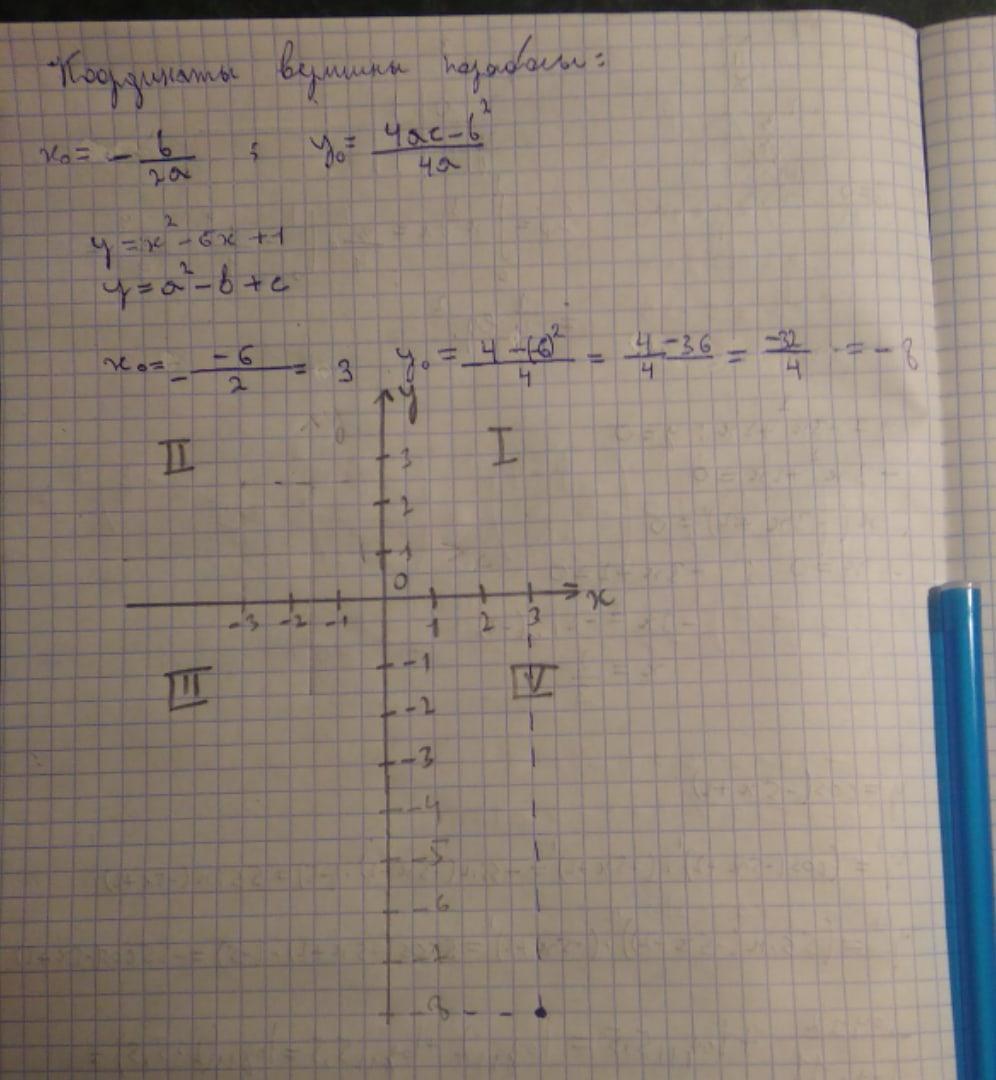 Координаты вершины параболы:
x₀ = - b/2a ; y₀ = (4ac - b²)/4a
y = x² - 6x + 1
y = a² - b + c
x₀ = - (-6)/2 = 3 y₀ = (4 - (6)²)/4 = (4 - 36)/4 = -32/4 = -8
y
II I
3
2
1
0
-3 -2 -1 1 2 3 x
-1
III IV
-2
-3
-4
-5
-6
-8